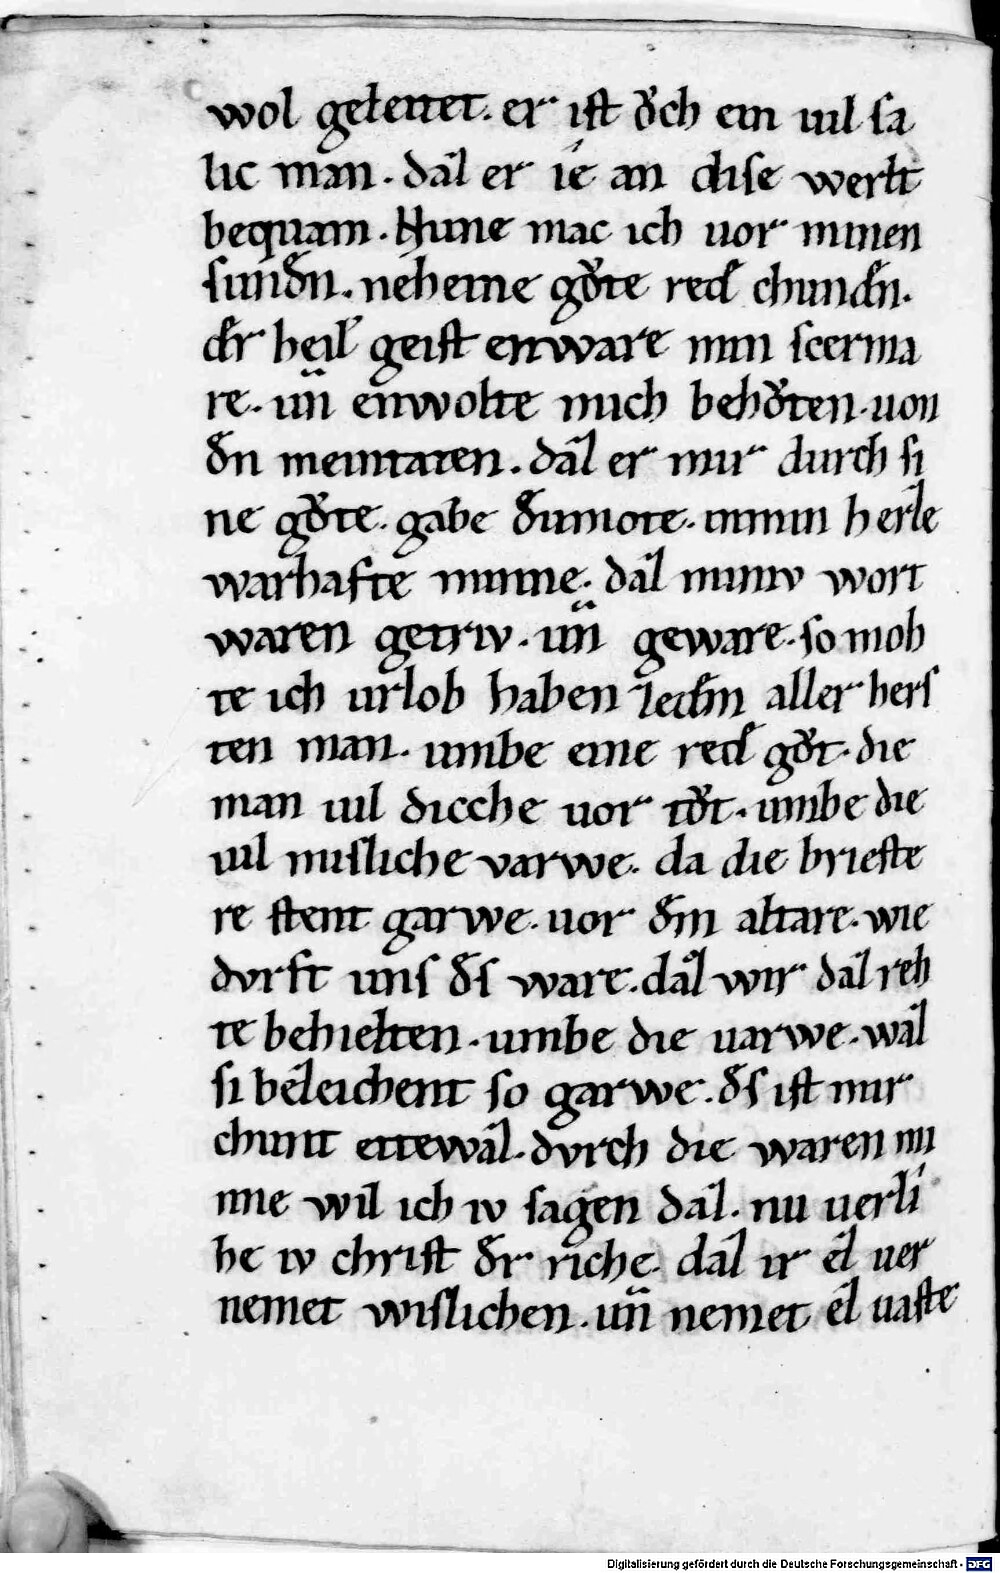 wol geleitet. er iſt oͮch ein uil ſa
lic man. daʒ er íe an diſe werlt
bequam. Nune mac ich uor minen
ſunden. neheine goͮte rede chunden.
der heil' geiſt enware min ſcerma
re. un̄ enwolte mich behoͮten. uon
den meintaten. daʒ er mir durch ſi
ne goͮte. gabe diemote. in min herʒe
warhafte minne. daʒ miniv wort
waren getriv. un̄ geware. ſo moh
te ich urlob haben ʒeden aller herſ
ten man. umbe eine rede goͮt. die
man uil dicche uor toͮt. umbe die
uil miſliche varwe. da die brieſte
re ſtent garwe. uor dem altare. wie
dvrft unſ deſ ware. daʒ wir daʒ reh
te behielten. umbe die uarwe. waʒ
ſi beʒeichent ſo garwe. deſ iſt mir
chunt ettewaʒ. dvrch die waren mi
nne wil ich iv ſagen daʒ. nu uerlí
he iv chriſt der riche. daʒ ir eʒ uer
nemet wiſlichen. un̄ nemet eʒ uaſte
Digitalisierung gefördert durch die Deutsche Forschungsgemeinschaft - DFG